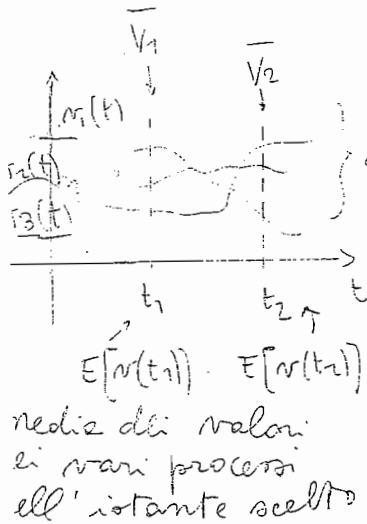 V1
V2
v1(t)
r2(t)
r3(t)
t1 t2 t
E[v(t1)] . E[v(t2)]
nedia dei valori
ei vari processi
ell'istante scelto